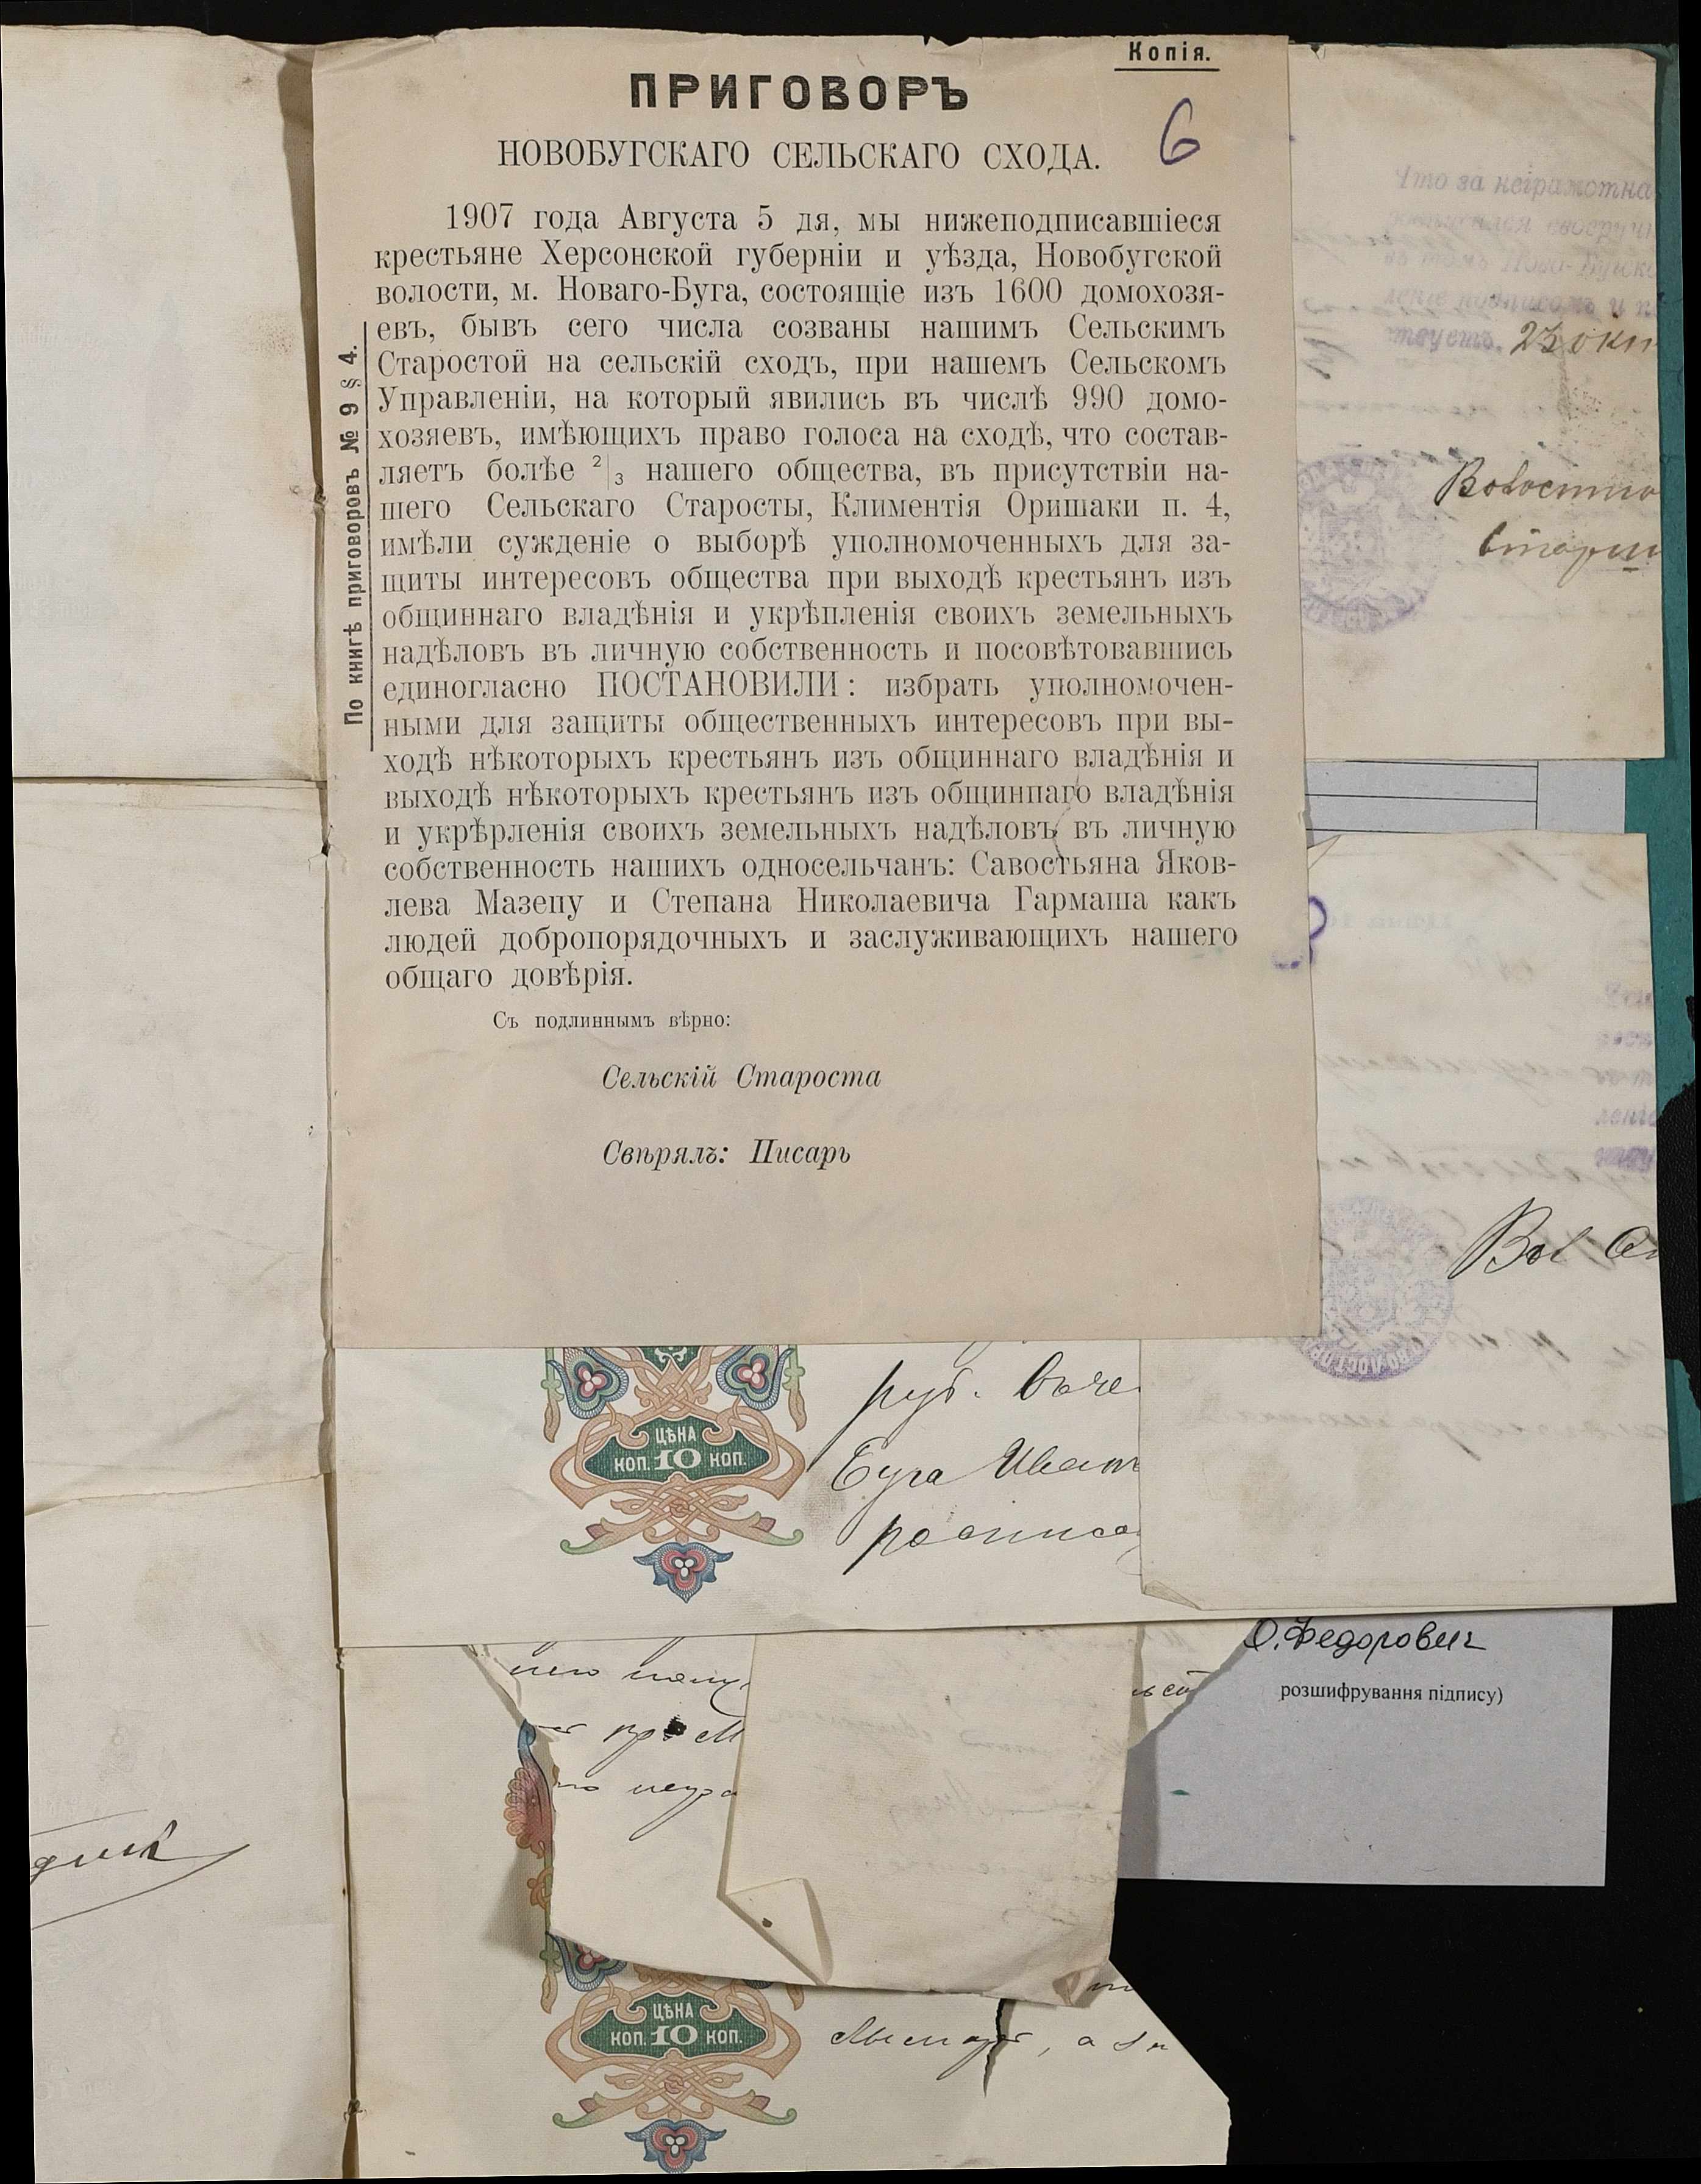 Копія.
ПРИГОВОРЪ
6
НОВОБУГСКАГО СЕЛЬСКАГО СХОДА.
1907 года Августа 5 дя, мы нижеподписавшіеся
крестьяне Херсонской губерніи и уѣзда, Новобугской
волости, м. Новаго-Буга, состоящіе изъ 1600 домохозя-
евъ, бывъ сего числа созваны нашимъ Сельскимъ
Старостой на сельскій сходъ, при нашемъ Сельскомъ
Управленіи, на который явились въ числѣ 990 домо-
хозяевъ, имѣющихъ право голоса на сходѣ, что состав-
ляетъ болѣе 2/3 нашего общества, въ присутствіи на-
шего Сельскаго Старосты, Климентія Оришаки п. 4,
имѣли сужденіе о выборѣ уполномоченныхъ для за-
щиты интересовъ общества при выходѣ крестьянъ изъ
общиннаго владѣнія и укрѣпленія своихъ земельныхъ
надѣловъ въ личную собственность и посовѣтовавшись
единогласно ПОСТАНОВИЛИ: избрать уполномочен-
ными для защиты общественныхъ интересовъ при вы-
ходѣ нѣкоторыхъ крестьянъ изъ общиннаго владѣнія и
выходѣ нѣкоторыхъ крестьянъ изъ общинпаго владѣнія
и укрѣрленія своихъ земельныхъ надѣловъ въ личную
собственность нашихъ односельчанъ: Савостьяна Яков-
лева Мазепу и Степана Николаевича Гармаша какъ
людей добропорядочныхъ и заслуживающихъ нашего
общаго довѣрія.
Съ подлиннымъ вѣрно:
Сельскій Староста
Свѣрялъ: Писарь
По книгѣ приговоровъ № 9 § 4.
Что за неграмотна
23 окт
Волостно
Старш
Вол
руб.
Буга Иван
росписа
ЦѢНА
КОП. 10 КОП.
О. Федорович
розшифрування підпису)
ЦѢНА
КОП. 10 КОП.